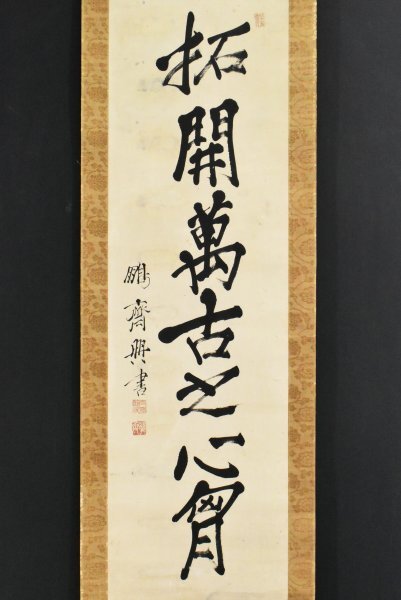 拓開萬古之心胷
鵬齋興書